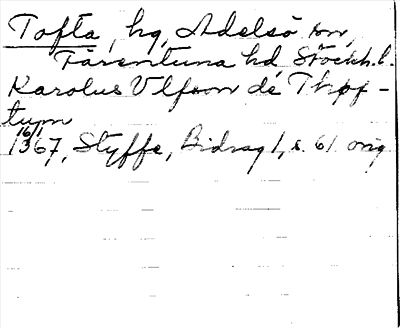 Tofta, hg, Adelsö sn,
Färentuna hd, Stockh. l.
Karolus Ulfson de Thop-
tum
16/1
1367, Styffe, Bidrag 1, s. 61 orig